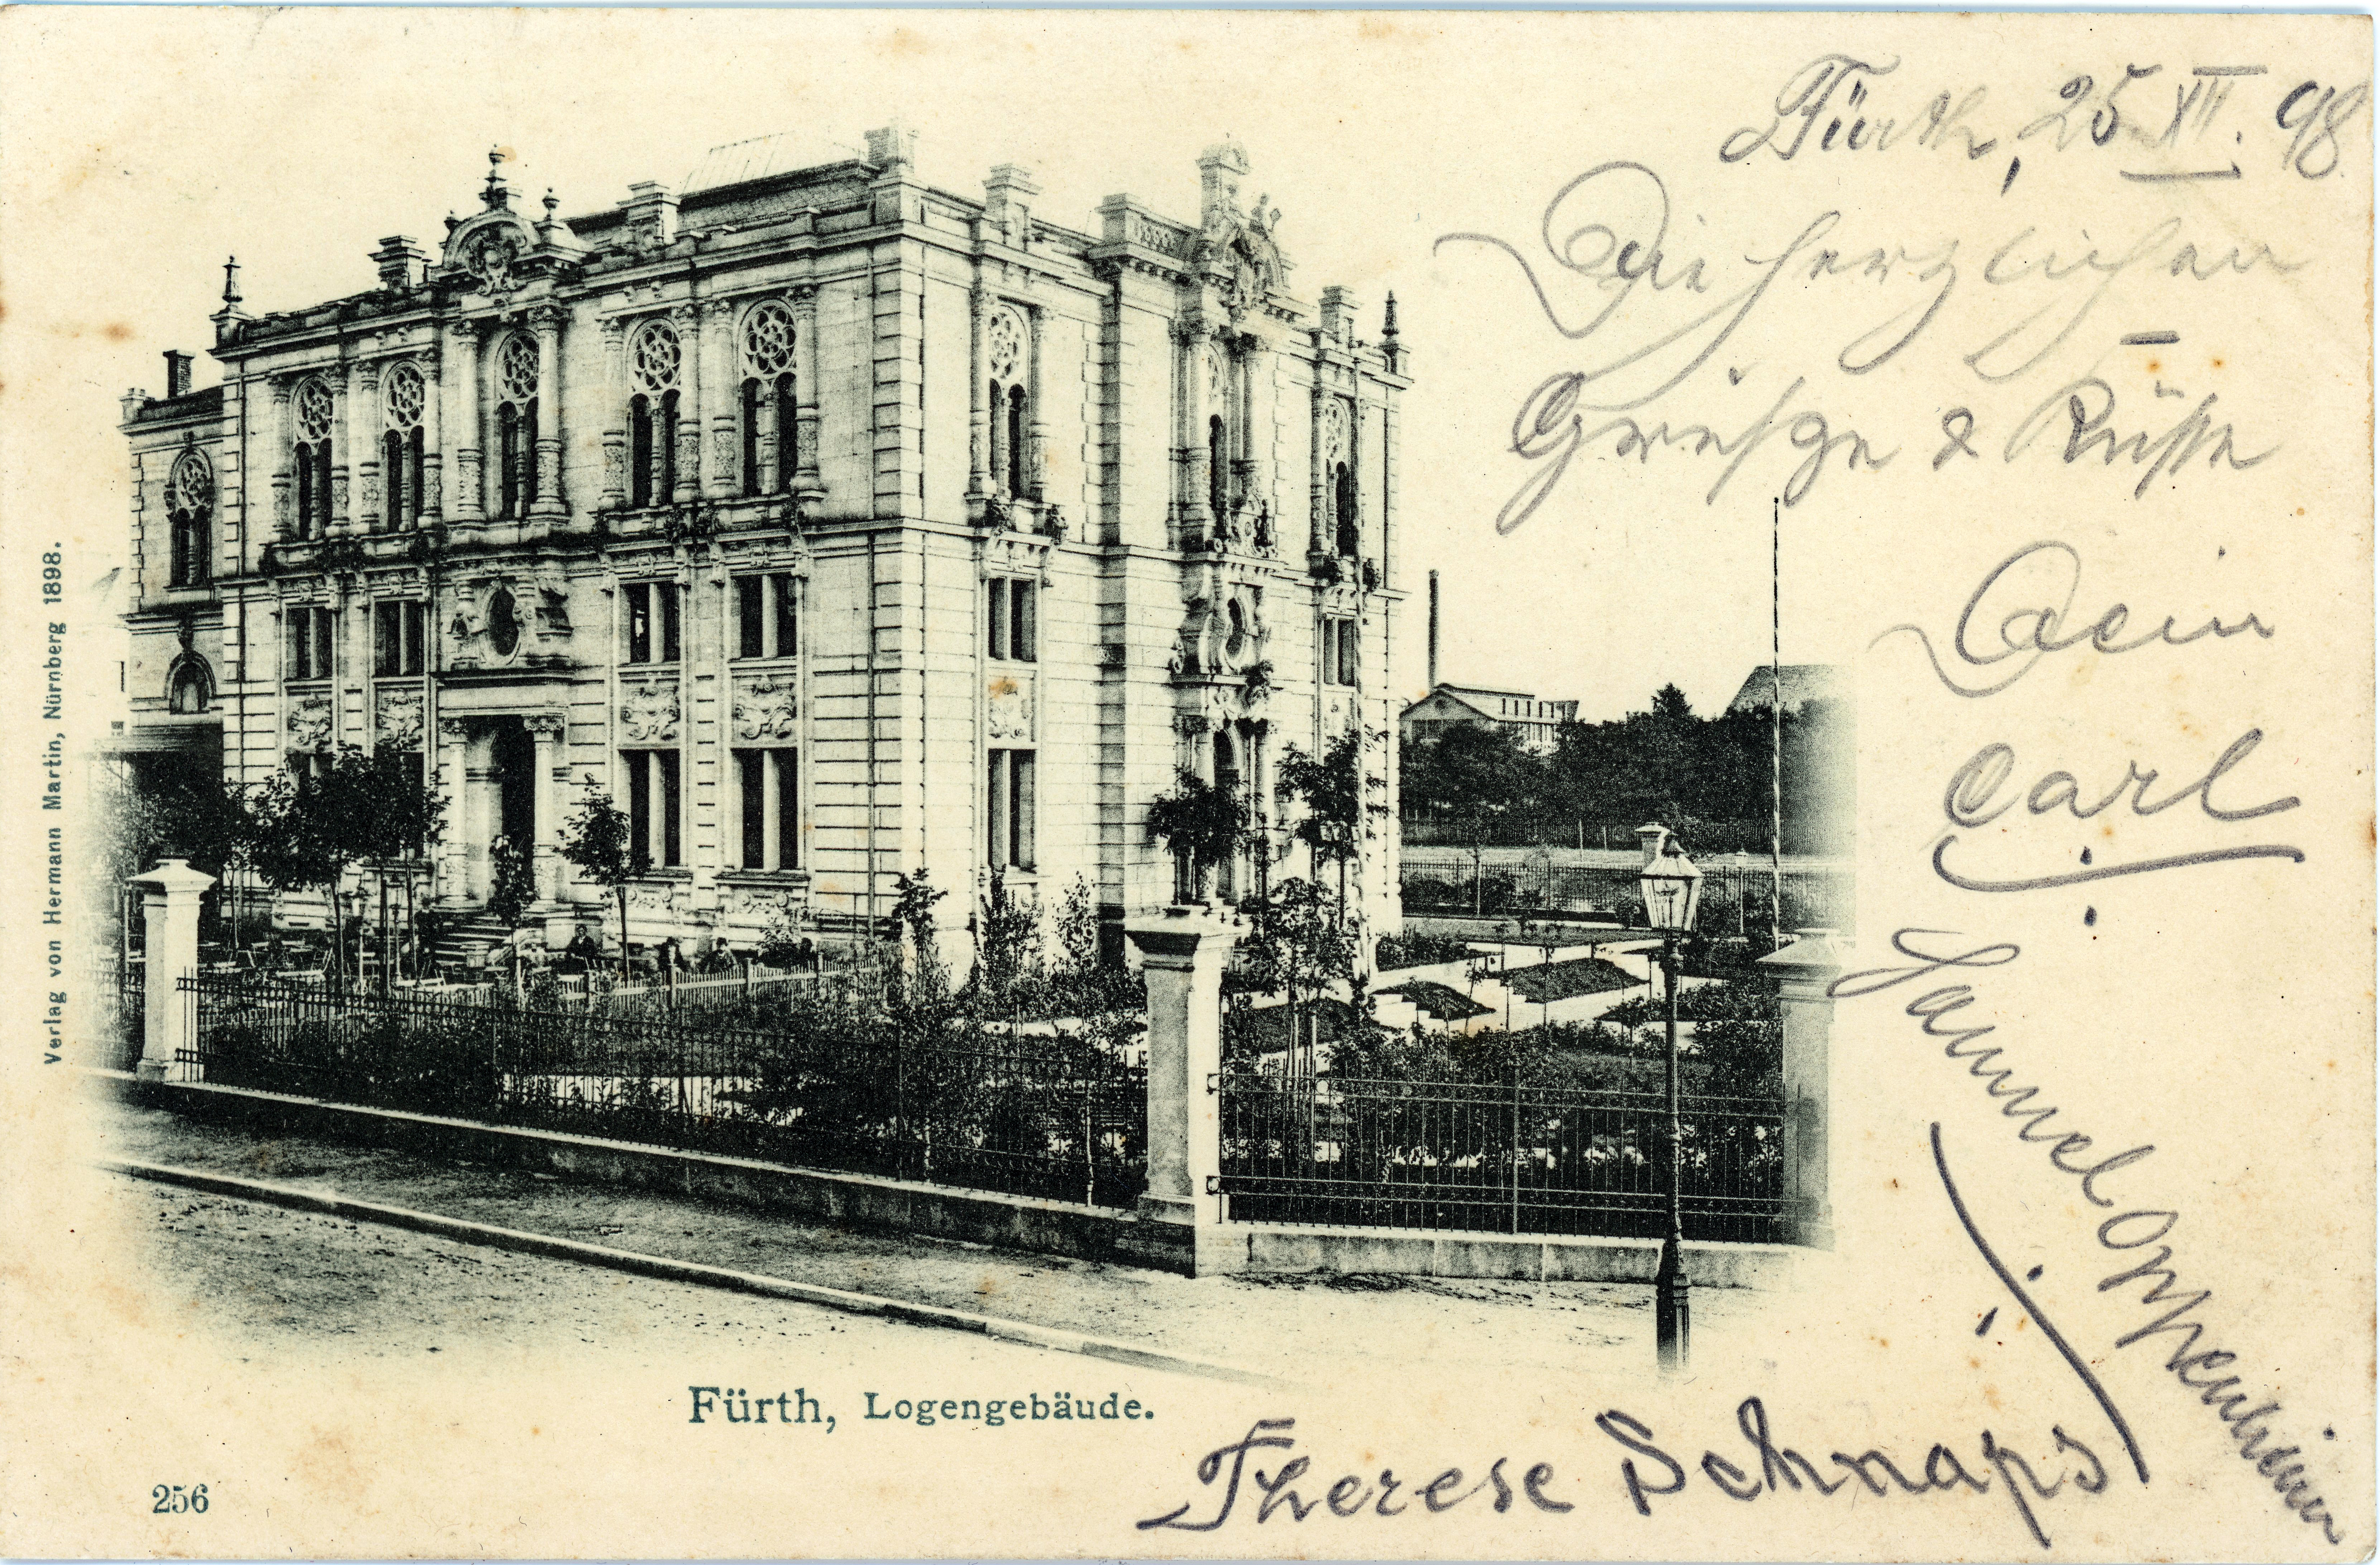 Fürth, 25 XII. 98.
Die herzlichen
Grüsze & Küsse
Dein
Carl
Samuel Oppenheimer
Therese Schnaps
Verlag von Hermann Martin, Nürnberg 1898.
Fürth, Logengebäude.
256